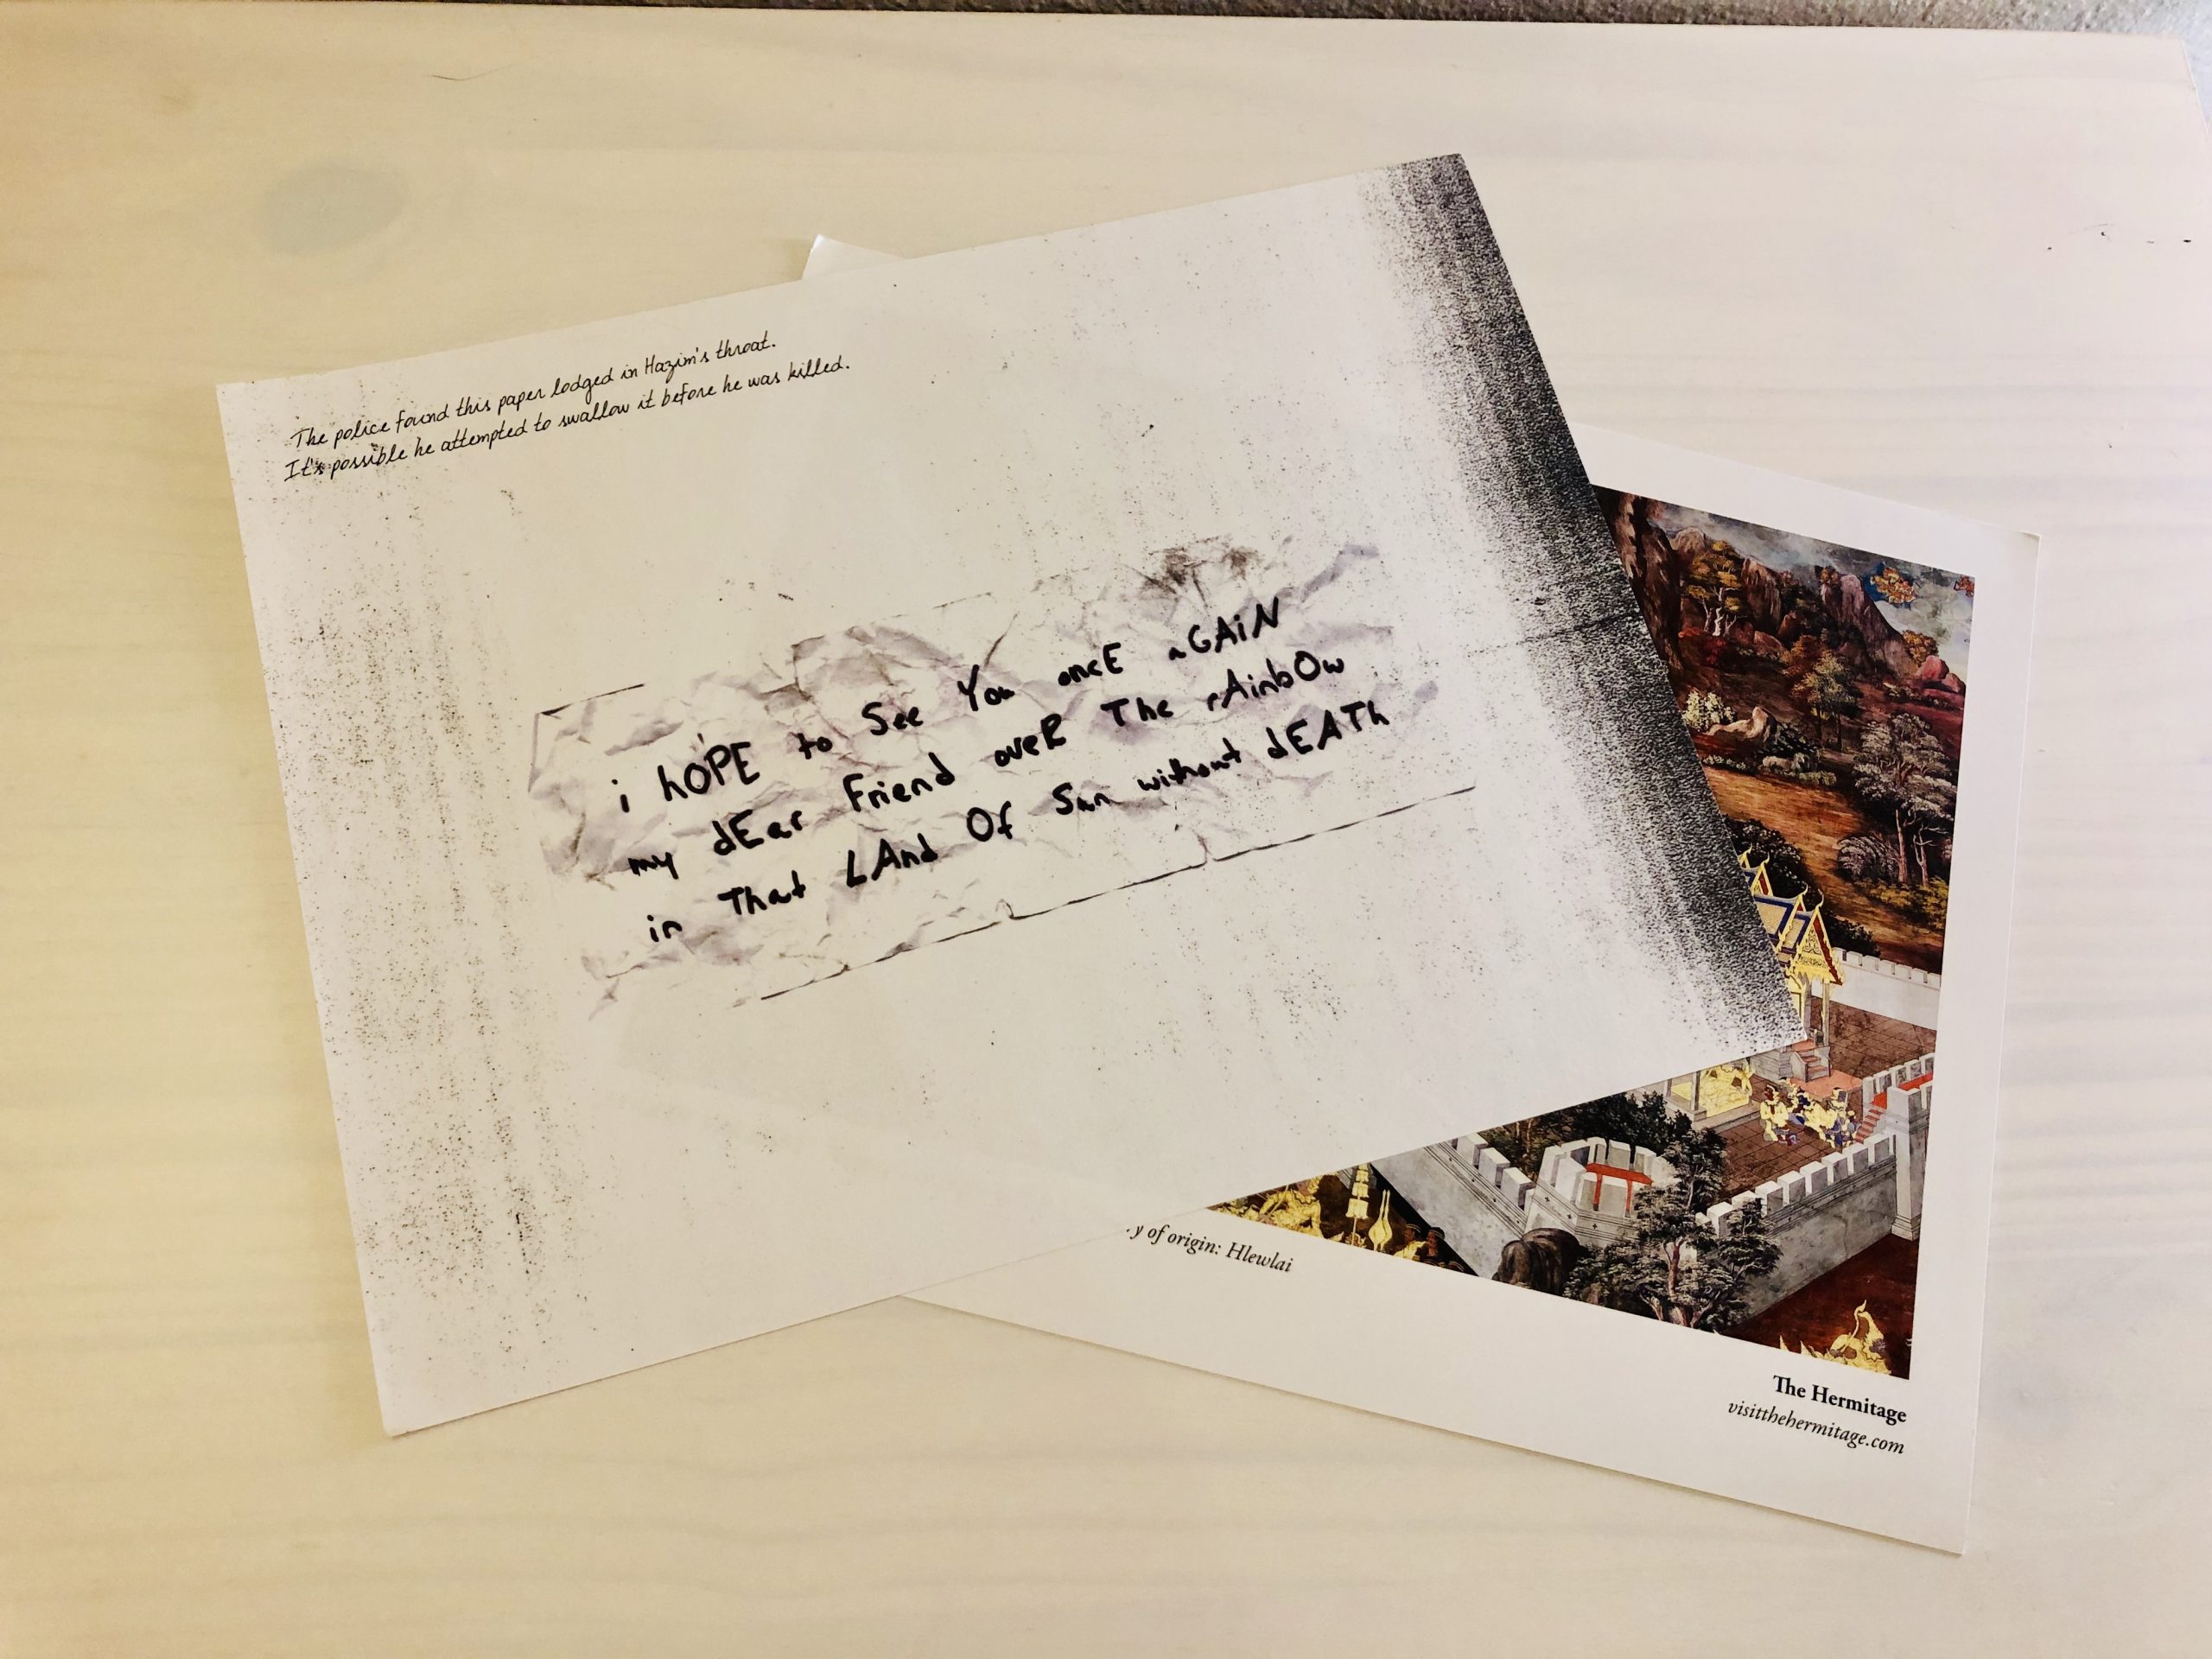 The police found this paper lodged in Hazim's throat.
It's possible he attempted to swallow it before he was killed.
i hOPE to See You oncE aGAiN
my dEar Friend oveR The rAinbOw
in That LAnd Of Sun without dEATh
y of origin: Hlewlai
The Hermitage
visitthehermitage.com